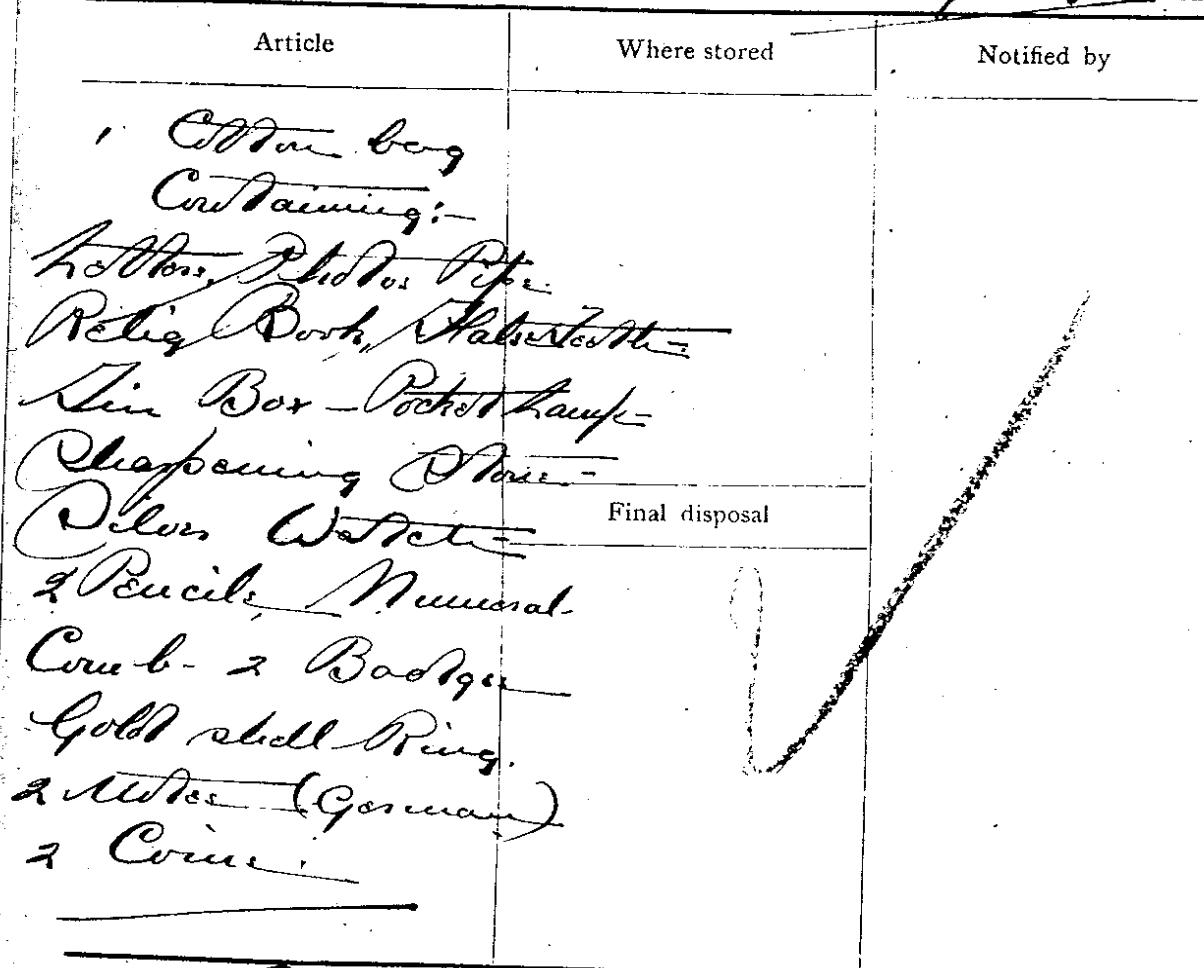 Article Where stored Notified by
1 Cotton bag
Containing:-
Letters, Photos Pipe.
Relig Book, False Teeth-
Tin Box - Pocket Lamp-
Sharpening Stone-
Silver Watch-
Final disposal
2 Pencils, Numeral
Comb- 2 Badges
Gold shell Ring.
2 Notes (German)
2 Coins.